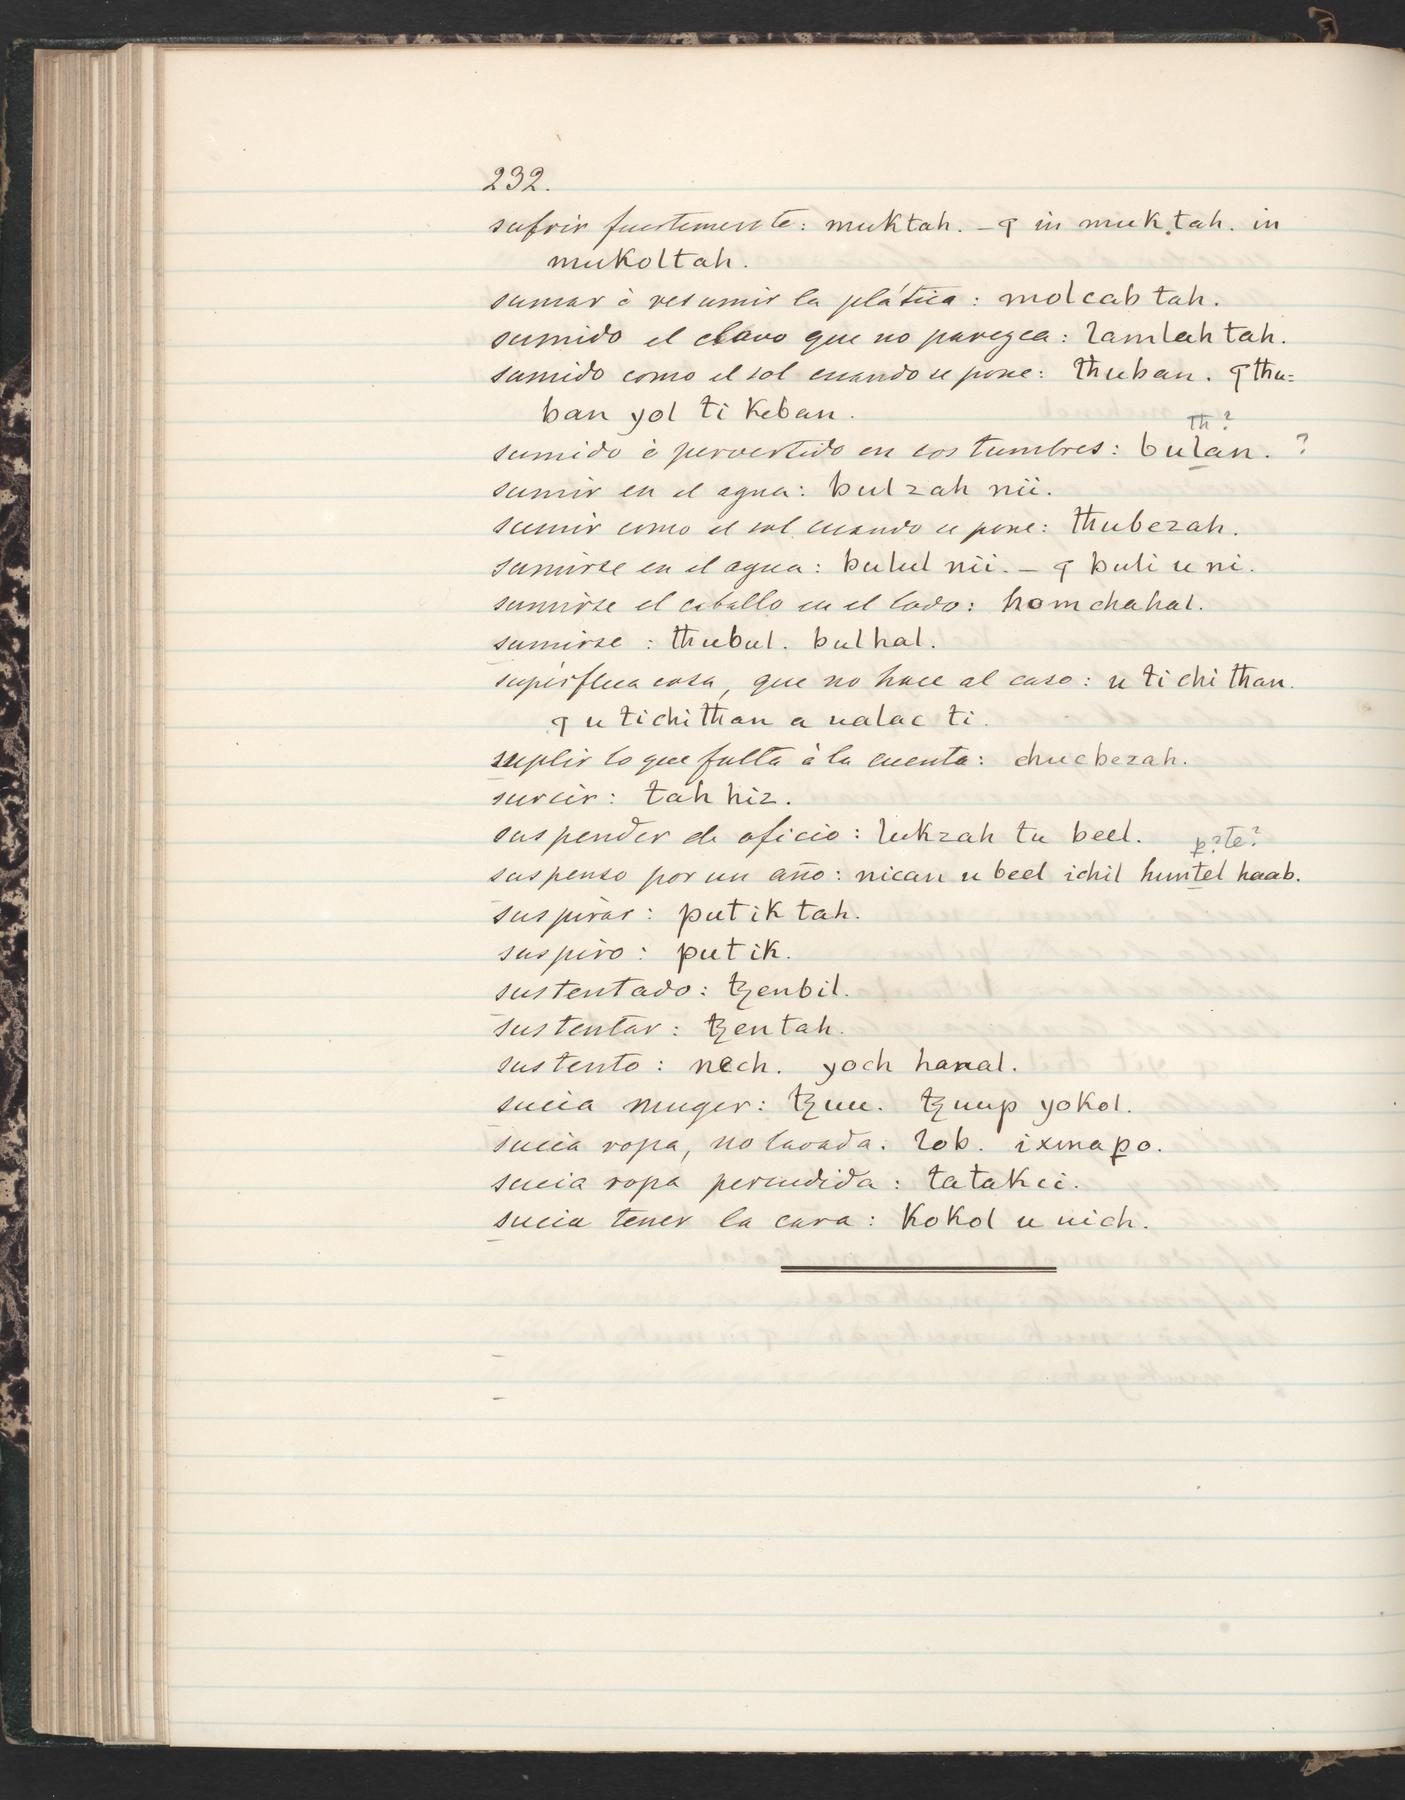 232.
sufrir fuertemente: muktah. – ꟼ in muk.tah. in
mukoltah.
sumar ò resumir la plática: molcab tah.
sumido el clavo que no parezca: lamlah tah.
sumido como el sol cuando se pone: thuban. ꟼ thu=
ban yol ti keban.
th?
sumido ò pervertido en costumbres: bulan. ?
sumir en el agua: bulzah nii.
sumir como el sol cuando se pone: thubezah.
sumirse en el agua: bulul nii. – ꟼ buli u ni.
sumirse el caballo en el lodo: hom chahal.
sumirse: thubul. bulhal.
supérflua cosa, que no hace al caso: u tichithan.
ꟼ u tichithan a ualac ti.
suplir lo que falta à la cuenta: chucbezah.
surcir: tah hiz.
suspender de oficio: lukzah tu beel.
p? te?
suspenso por un año: nican u beel ichil huntel haab.
suspirar: putik tah.
suspiro: putik.
sustentado: tzenbil.
sustentar: tzentah.
sustento: nech. yoch hanal.
sucia muger: tzuu. tzuup yokol.
sucia ropa, no lavada: lob. ixmapo.
sucia ropa percudida: tatakci.
sucia tener la cara: kokol u uich.